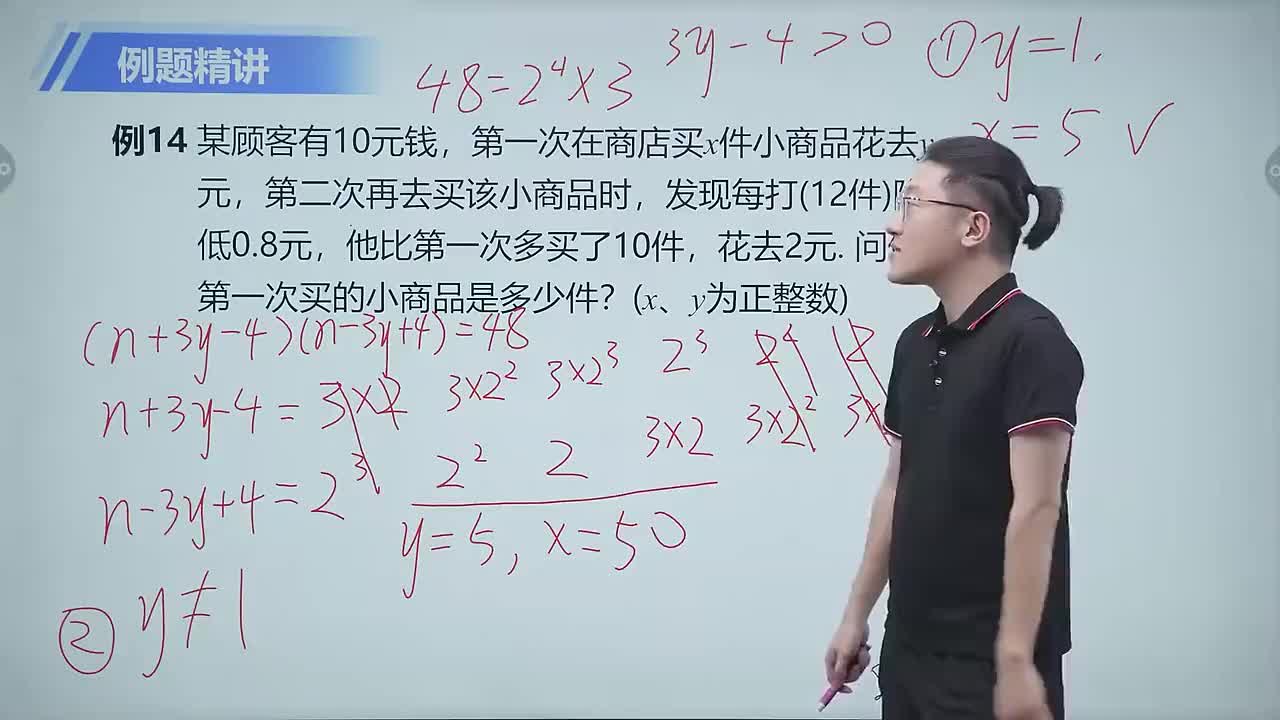 例题精讲
48=2⁴×3
3y-4>0
①y=1.
x=5 ✓
例14 某顾客有10元钱，第一次在商店买x件小商品花去y
元，第二次再去买该小商品时，发现每打(12件)降
低0.8元，他比第一次多买了10件，花去2元. 问
第一次买的小商品是多少件？(x、y为正整数)
(n+3y-4)(n-3y+4)=48
n+3y-4= 3×2 3×2² 3×2³ 2³ 2⁴
n-3y+4=2³ 2² 2 3×2 3×2²
y=5, x=50
② y≠1